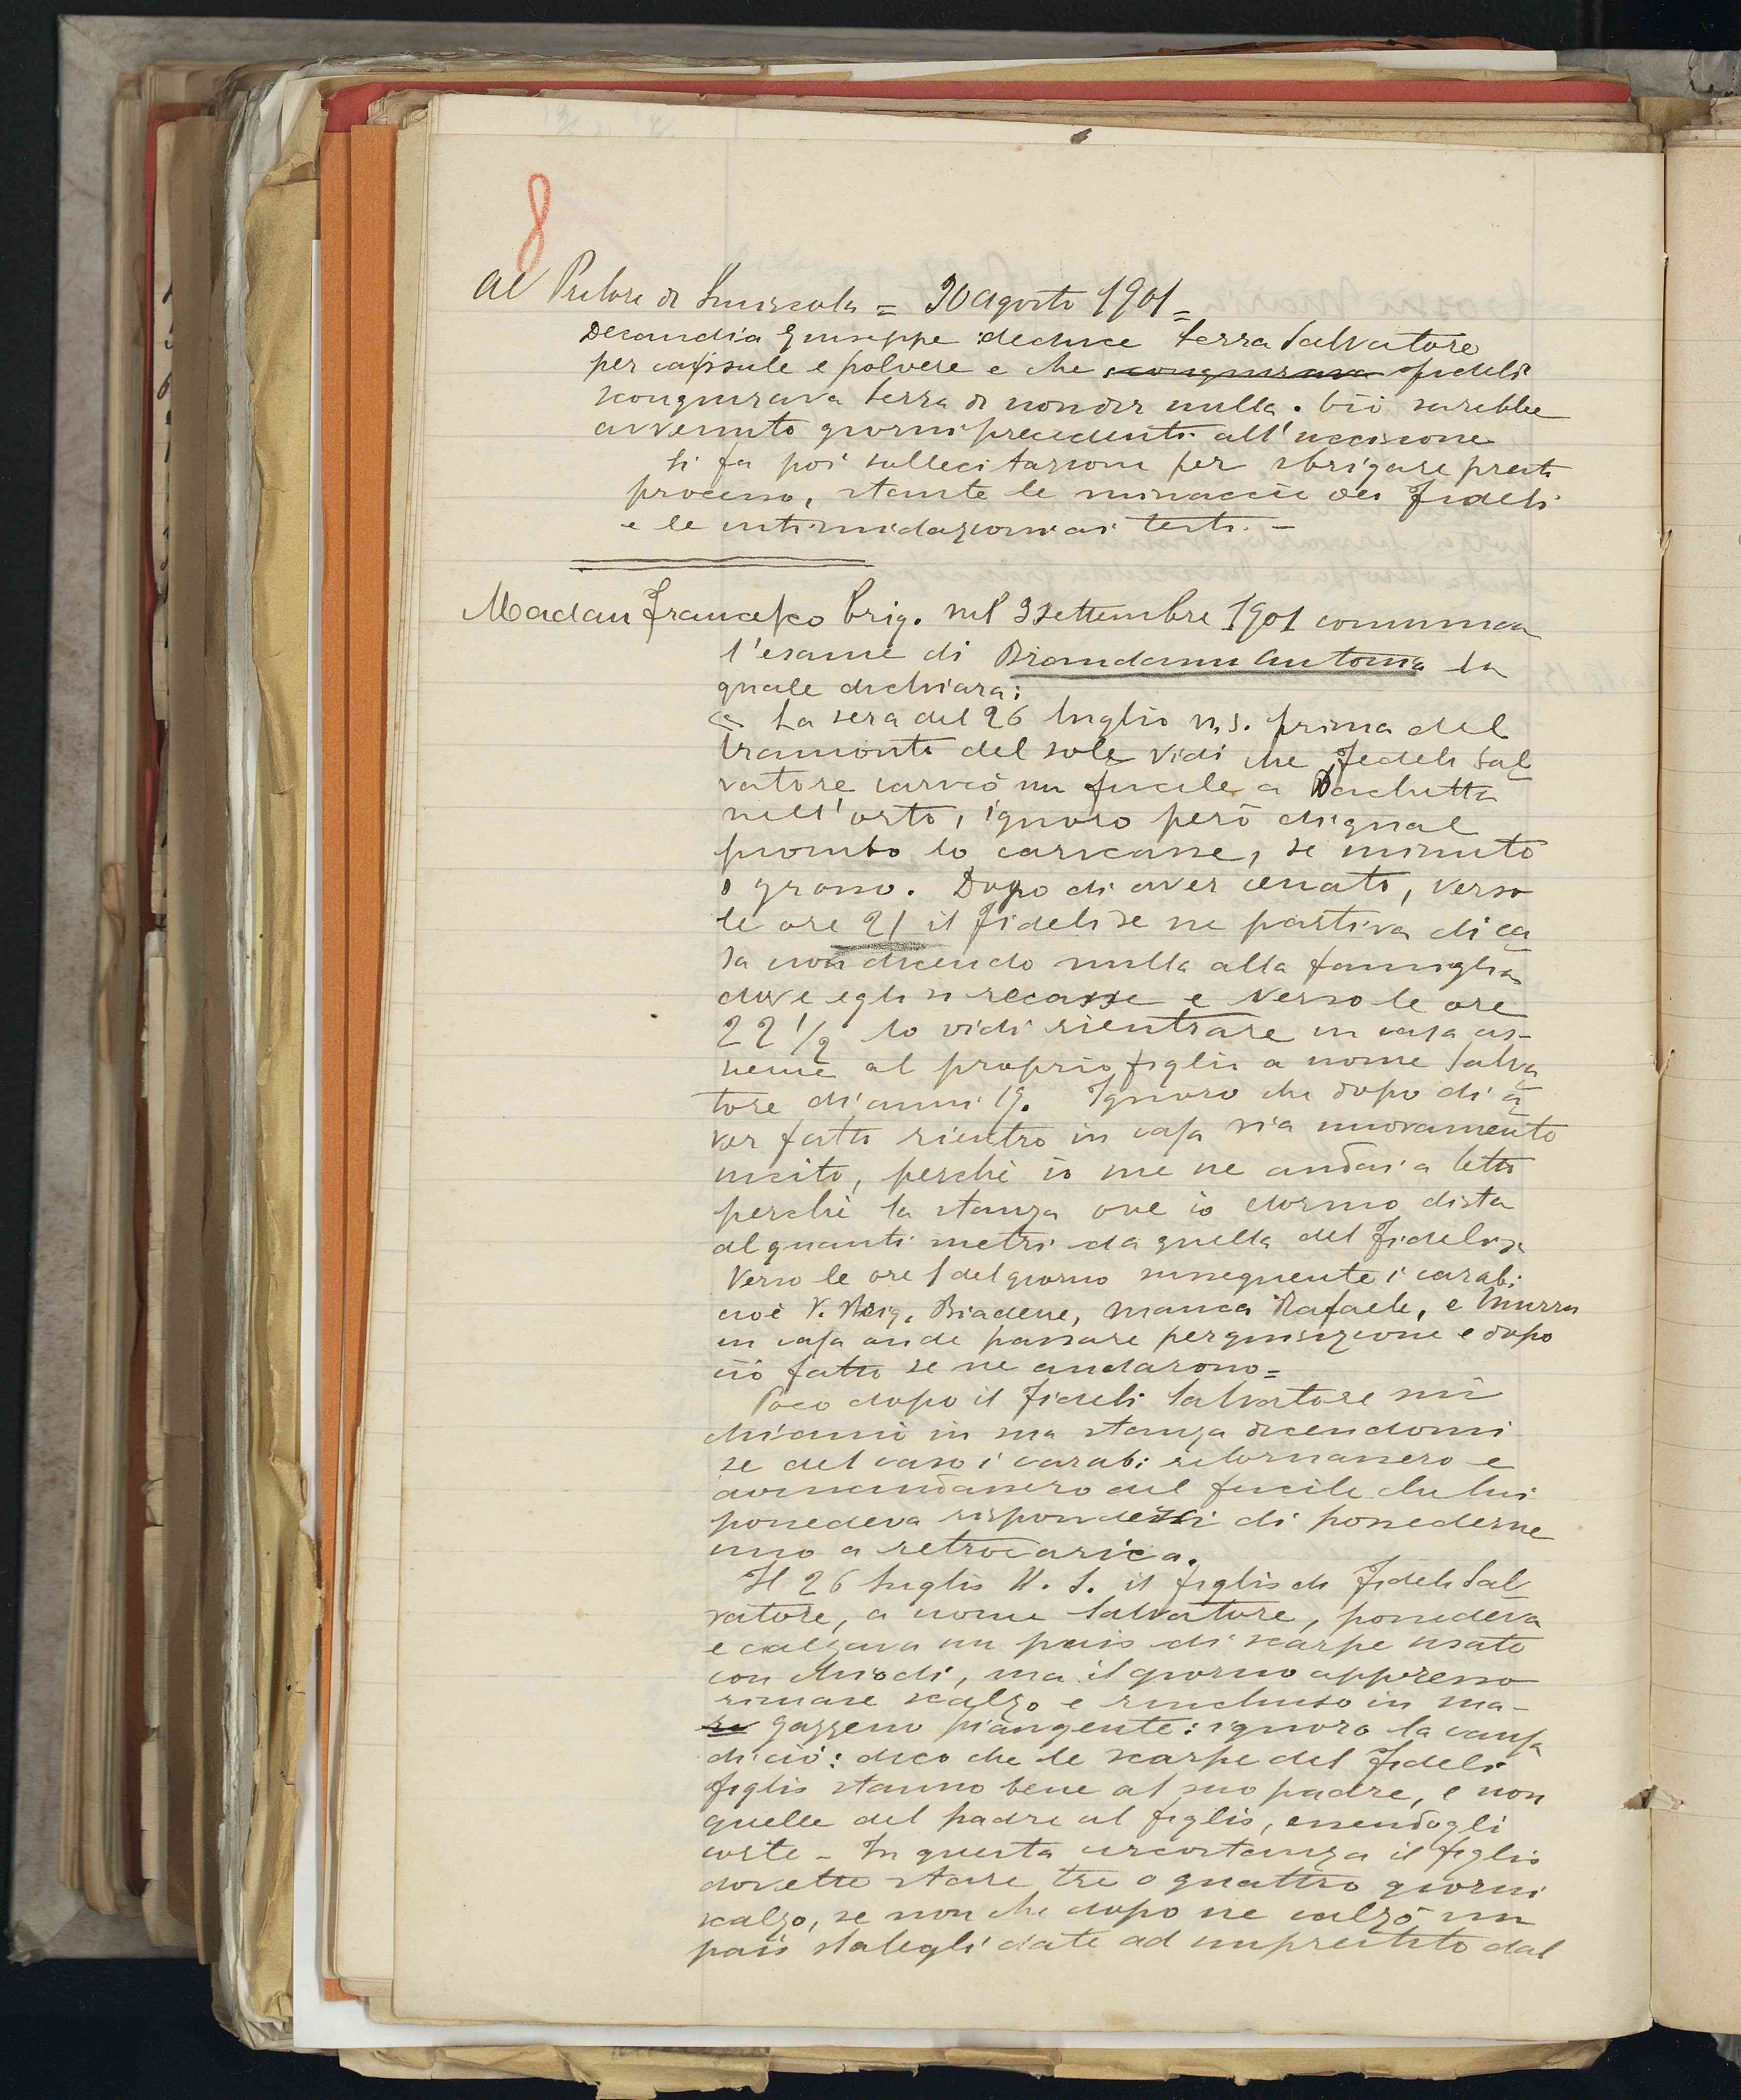 8
Al Pretore di Siniscola = 30 agosto 1901 =
Decandia Giuseppe deduce Serra Salvatore
per capsule e polvere e che scongiurava Fideli
scongiurava Serra di non dir nulla. Ciò sarebbe
avvenuto giorni precedenti all'uccisione
Si fa poi sollecitazione per sbrigare presto
processo, stante le minaccie dei Fideli
e le intimidazioni ai testi. -
Madau Francesco brig. nel 3 Settembre 1901 comunica
l'esame di Brandanu Antonia la
quale dichiara:
« La sera del 26 luglio u.s. prima del
tramonto del sole vidi che Fedeli Sal
vatore caricò un fucile a Bachetta
nell'orto, ignoro però di qual
piombo lo caricasse, se minuto
o grosso. Dopo di aver cenato, verso
le ore 21 il Fideli se ne partiva di ca
sa non dicendo nulla alla famiglia
dove egli si recasse e verso le ore
22 1/2 lo vidi rientrare in casa as-
sieme al proprio figlio a nome Salva
tore di anni 19. Ignoro che dopo di a
ver fatto rientro in casa sia nuovamente
uscito, perchè io me ne andai a letto
perchè la stanza ove io dormo dista
alquanti metri da quella del Fideli
Verso le ore 1 del giorno susseguente i carab:
cioè V. Brig. Biadene, Manca Rafaele, e Murru
in casa onde passare perquisizione e dopo
ciò fatto se ne andarono =
Poco dopo il Fideli Salvatore mi
chiamò in sua stanza dicendomi
se del caso i carab: ritornassero e
domandassero del fucile che lui
possedeva rispondessi di possederne
uno a retrocarica.
Il 26 luglio u.s. il figlio di Fideli Sal
vatore, a nome Salvatore, possedeva
e calzava un paio di scarpe usate
con chiodi, ma il giorno appresso
rimase scalzo e rinchiuso in ma-
gazzeno piangente: ignoro la causa
di ciò: dico che le scarpe del Fideli
figlio stanno bene al suo padre, e non
quelle del padre al figlio, essendogli
corte - In questa circostanza il figlio
dovette stare tre o quattro giorni
scalzo, se non che dopo ne calzò un
paio stategli date ad imprestito dal